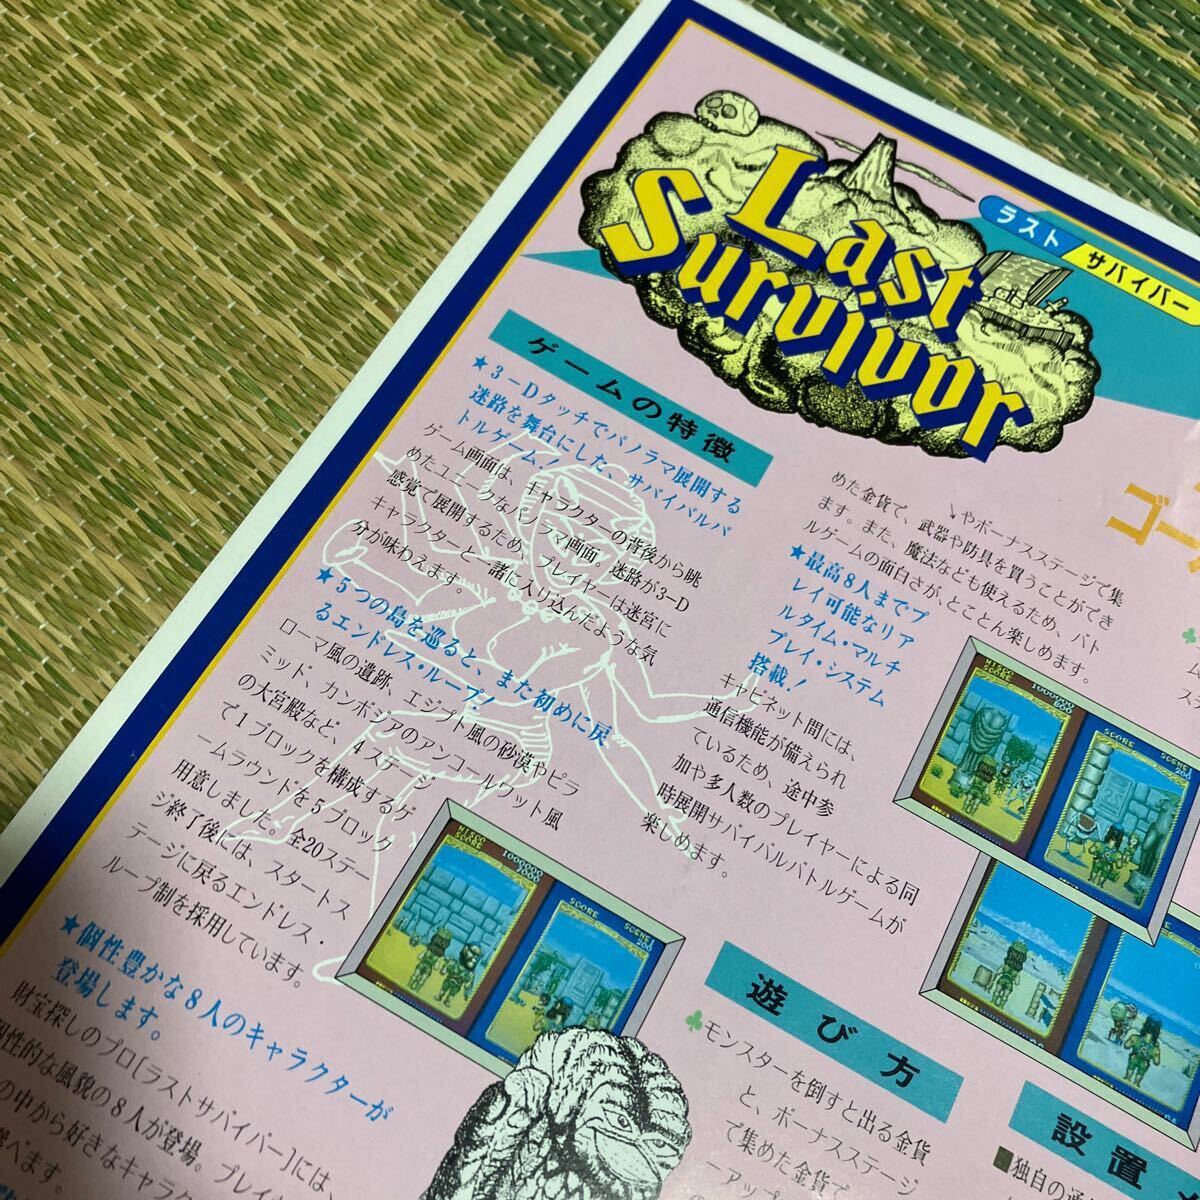 Last
Survivor
ラスト
サバイバー
ゲームの特徴
★3-Dタッチでパノラマ展開する
迷路を舞台にした、サバイバルバ
トルゲーム！
ゲーム画面は、キャラクターの背後から眺
めたユニークなパノラマ画面。迷路が3-D
感覚で展開するため、プレイヤーは迷宮に
キャラクターと一諸に入り込んだような気
分が味わえます。
★5つの島を巡ると、また初めに戻
るエンドレス・ループ！
ローマ風の遺跡、エジプト風の砂漠やピラ
ミッド、カンボジアのアンコールワット風
の大宮殿など、4ステージ
で1ブロックを構成するゲ
ームラウンドを5ブロック
用意しました。全20ステー
ジ終了後には、スタートス
テージに戻るエンドレス・
ループ制を採用しています。
★個性豊かな8人のキャラクターが
登場します。
財宝探しのプロ[ラストサバイバー]には、
個性的な風貌の8人が登場。プレイ
の中から好きなキャラク
べます。
↘やボーナスステージで集
めた金貨で、武器や防具を買うことができ
ます。また、魔法なども使えるため、バト
ルゲームの面白さが、とことん楽しめます。
★最高8人までプ
レイ可能なリア
ルタイム・マルチ
プレイ・システム
搭載！
キャビネット間には、
通信機能が備えられ
ているため、途中参
加や多人数のプレイヤーによる同
時展開サバイバルバトルゲームが
楽しめます。
HISCO 1000000
SCORE 600
SCORE SCENE1
200
HISCO 1000000
SCORE 7000
SCORE SCENE1
200
遊び方
♣モンスターを倒すと出る金貨
と、ボーナスステージ
で集めた金貨で
ーアップ
設置
■独自の通
ゴー